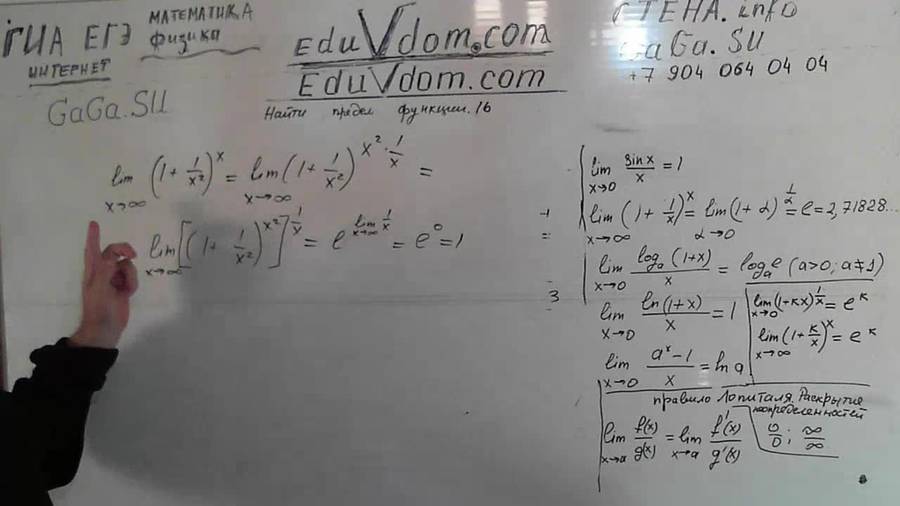 ГИА ЕГЭ
ИНТЕРНЕТ
МАТЕМАТИКА
физика
GaGa.SU
EduVdom.com
EduVdom.com
Найти предел функции. 16
СТЕНА.info
GaGa.SU
+7 904 064 04 04
lim x→∞ (1 + 1/x²)^x = lim x→∞ (1 + 1/x²)^(x² · 1/x) =
lim x→∞ [(1 + 1/x²)^(x²)]^(1/x) = e^(lim x→∞ 1/x) = e^0 = 1
lim x→0 sinx/x = 1
lim x→∞ (1 + 1/x)^x = lim α→0 (1 + α)^(1/α) = e = 2,71828...
lim x→0 log_a (1+x)/x = log_a e (a>0; a≠1)
lim x→0 ln(1+x)/x = 1
lim x→0 (1+кx)^(1/x) = e^к
lim x→∞ (1 + к/x)^x = e^к
lim x→0 (a^x − 1)/x = ln a
правило Лопиталя. Раскрытие
неопределенностей
lim x→a f(x)/g(x) = lim x→a f'(x)/g'(x)
0/0 ; ∞/∞